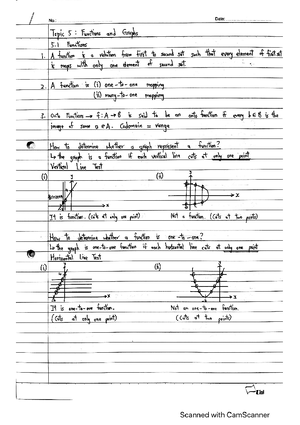 No.: Date:
Topic 5 : Functions and Graphs
5.1 Functions
1. A function is a relation from first to second set such that every element of first set
is maps with only one element of second set.
2. A function is (i) one-to-one mapping
(ii) many-to-one mapping
3. Onto Functions → f:A→B is said to be an onto function if every b∈B is the
image of some a∈A. Codomain = range
How to determine whether a graph represent a function?
the graph is a function if each vertical line cuts at only one point
Vertical Line Test
(i) (ii)
x x
It is function. (Cuts at only one point) Not a function. (Cuts at two points)
How to determine whether a function is one-to-one?
the graph is one-to-one function if each horizontal line cuts at only one point
Horizontal Line Test
(i) (ii)
x x
It is one-to-one function. Not an one-to-one function.
(Cuts at only one point) (Cuts at two points)
Scanned with CamScanner